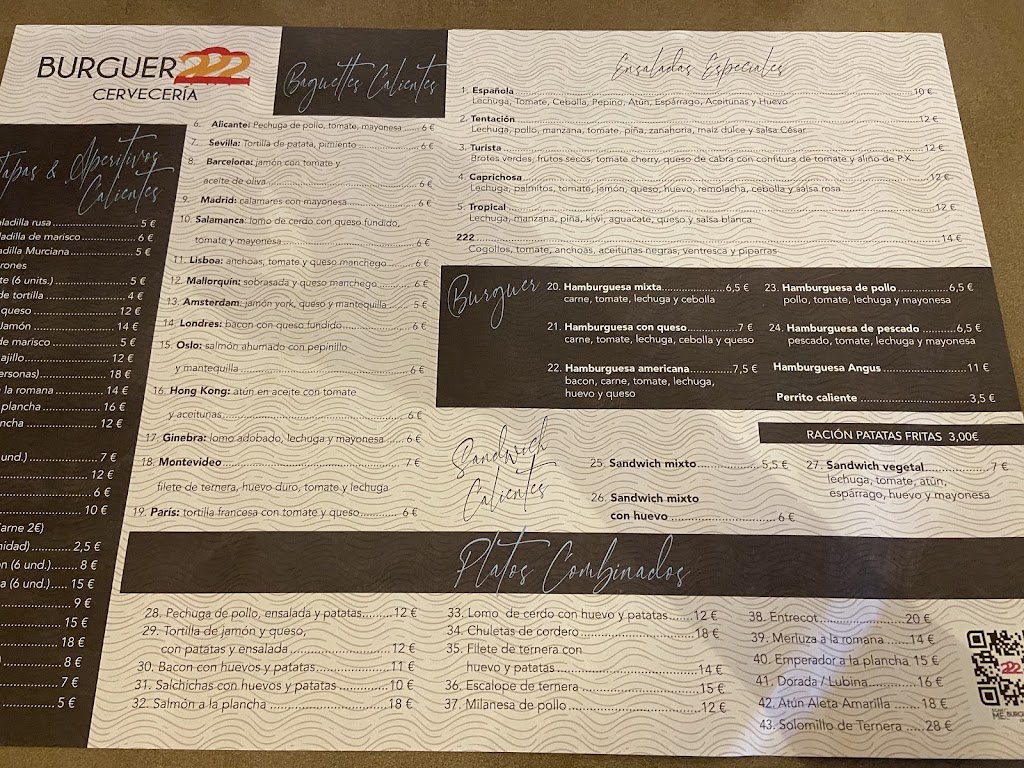 BURGUER 222
CERVECERÍA
Tapas & Aperitivos
Calientes
ladilla rusa 5 €
ladilla de marisco 6 €
adilla Murciana 5 €
rones
te (6 units.) 5 €
de tortilla 4 €
queso 12 €
Jamón 14 €
de marisco 5 €
ajillo 12 €
ersonas) 18 €
a la romana 14 €
plancha 16 €
ncha 12 €
und.) 7 €
12 €
6 €
10 €
carne 2€)
nidad) 2,5 €
n (6 und.) 8 €
a (6 und.) 15 €
9 €
15 €
18 €
8 €
7 €
5 €
Baguettes Calientes
6. Alicante: Pechuga de pollo, tomate, mayonesa 6 €
7. Sevilla: Tortilla de patata, pimiento 6 €
8. Barcelona: jamón con tomate y
aceite de oliva 6 €
9. Madrid: calamares con mayonesa 6 €
10. Salamanca: lomo de cerdo con queso fundido,
tomate y mayonesa 6 €
11. Lisboa: anchoas, tomate y queso manchego 6 €
12. Mallorquín: sobrasada y queso manchego 6 €
13. Amsterdam: jamón york, queso y mantequilla 5 €
14. Londres: bacon con queso fundido 6 €
15. Oslo: salmón ahumado con pepinillo
y mantequilla 6 €
16. Hong Kong: atún en aceite con tomate
y aceitunas 6 €
17. Ginebra: lomo adobado, lechuga y mayonesa 6 €
18. Montevideo 7 €
filete de ternera, huevo duro, tomate y lechuga
19. París: tortilla francesa con tomate y queso 6 €
Ensaladas Especiales
1. Española 10 €
Lechuga, Tomate, Cebolla, Pepino, Atún, Espárrago, Aceitunas y Huevo
2. Tentación 12 €
Lechuga, pollo, manzana, tomate, piña, zanahoria, maiz dulce y salsa César
3. Turista 12 €
Brotes verdes, frutos secos, tomate cherry, queso de cabra con confitura de tomate y aliño de P.X.
4. Caprichosa 12 €
Lechuga, palmitos, tomate, jamón, queso, huevo, remolacha, cebolla y salsa rosa
5. Tropical 12 €
Lechuga, manzana, piña, kiwi, aguacate, queso y salsa blanca
222 14 €
Cogollos, tomate, anchoas, aceitunas negras, ventresca y piparras
Burguer
20. Hamburguesa mixta 6,5 €
carne, tomate, lechuga y cebolla
21. Hamburguesa con queso 7 €
carne, tomate, lechuga, cebolla y queso
22. Hamburguesa americana 7,5 €
bacon, carne, tomate, lechuga,
huevo y queso
23. Hamburguesa de pollo 6,5 €
pollo, tomate, lechuga y mayonesa
24. Hamburguesa de pescado 6,5 €
pescado, tomate, lechuga y mayonesa
Hamburguesa Angus 11 €
Perrito caliente 3,5 €
RACIÓN PATATAS FRITAS 3,00€
Sandwich
Calientes
25. Sandwich mixto 5,5 €
26. Sandwich mixto
con huevo 6 €
27. Sandwich vegetal 7 €
lechuga, tomate, atún,
espárrago, huevo y mayonesa
Platos Combinados
28. Pechuga de pollo, ensalada y patatas 12 €
29. Tortilla de jamón y queso,
con patatas y ensalada 12 €
30. Bacon con huevos y patatas 11 €
31. Salchichas con huevos y patatas 10 €
32. Salmón a la plancha 18 €
33. Lomo de cerdo con huevo y patatas 12 €
34. Chuletas de cordero 18 €
35. Filete de ternera con
huevo y patatas 14 €
36. Escalope de ternera 15 €
37. Milanesa de pollo 12 €
38. Entrecot 20 €
39. Merluza a la romana 14 €
40. Emperador a la plancha 15 €
41. Dorada / Lubina 16 €
42. Atún Aleta Amarilla 18 €
43. Solomillo de Ternera 28 €
222